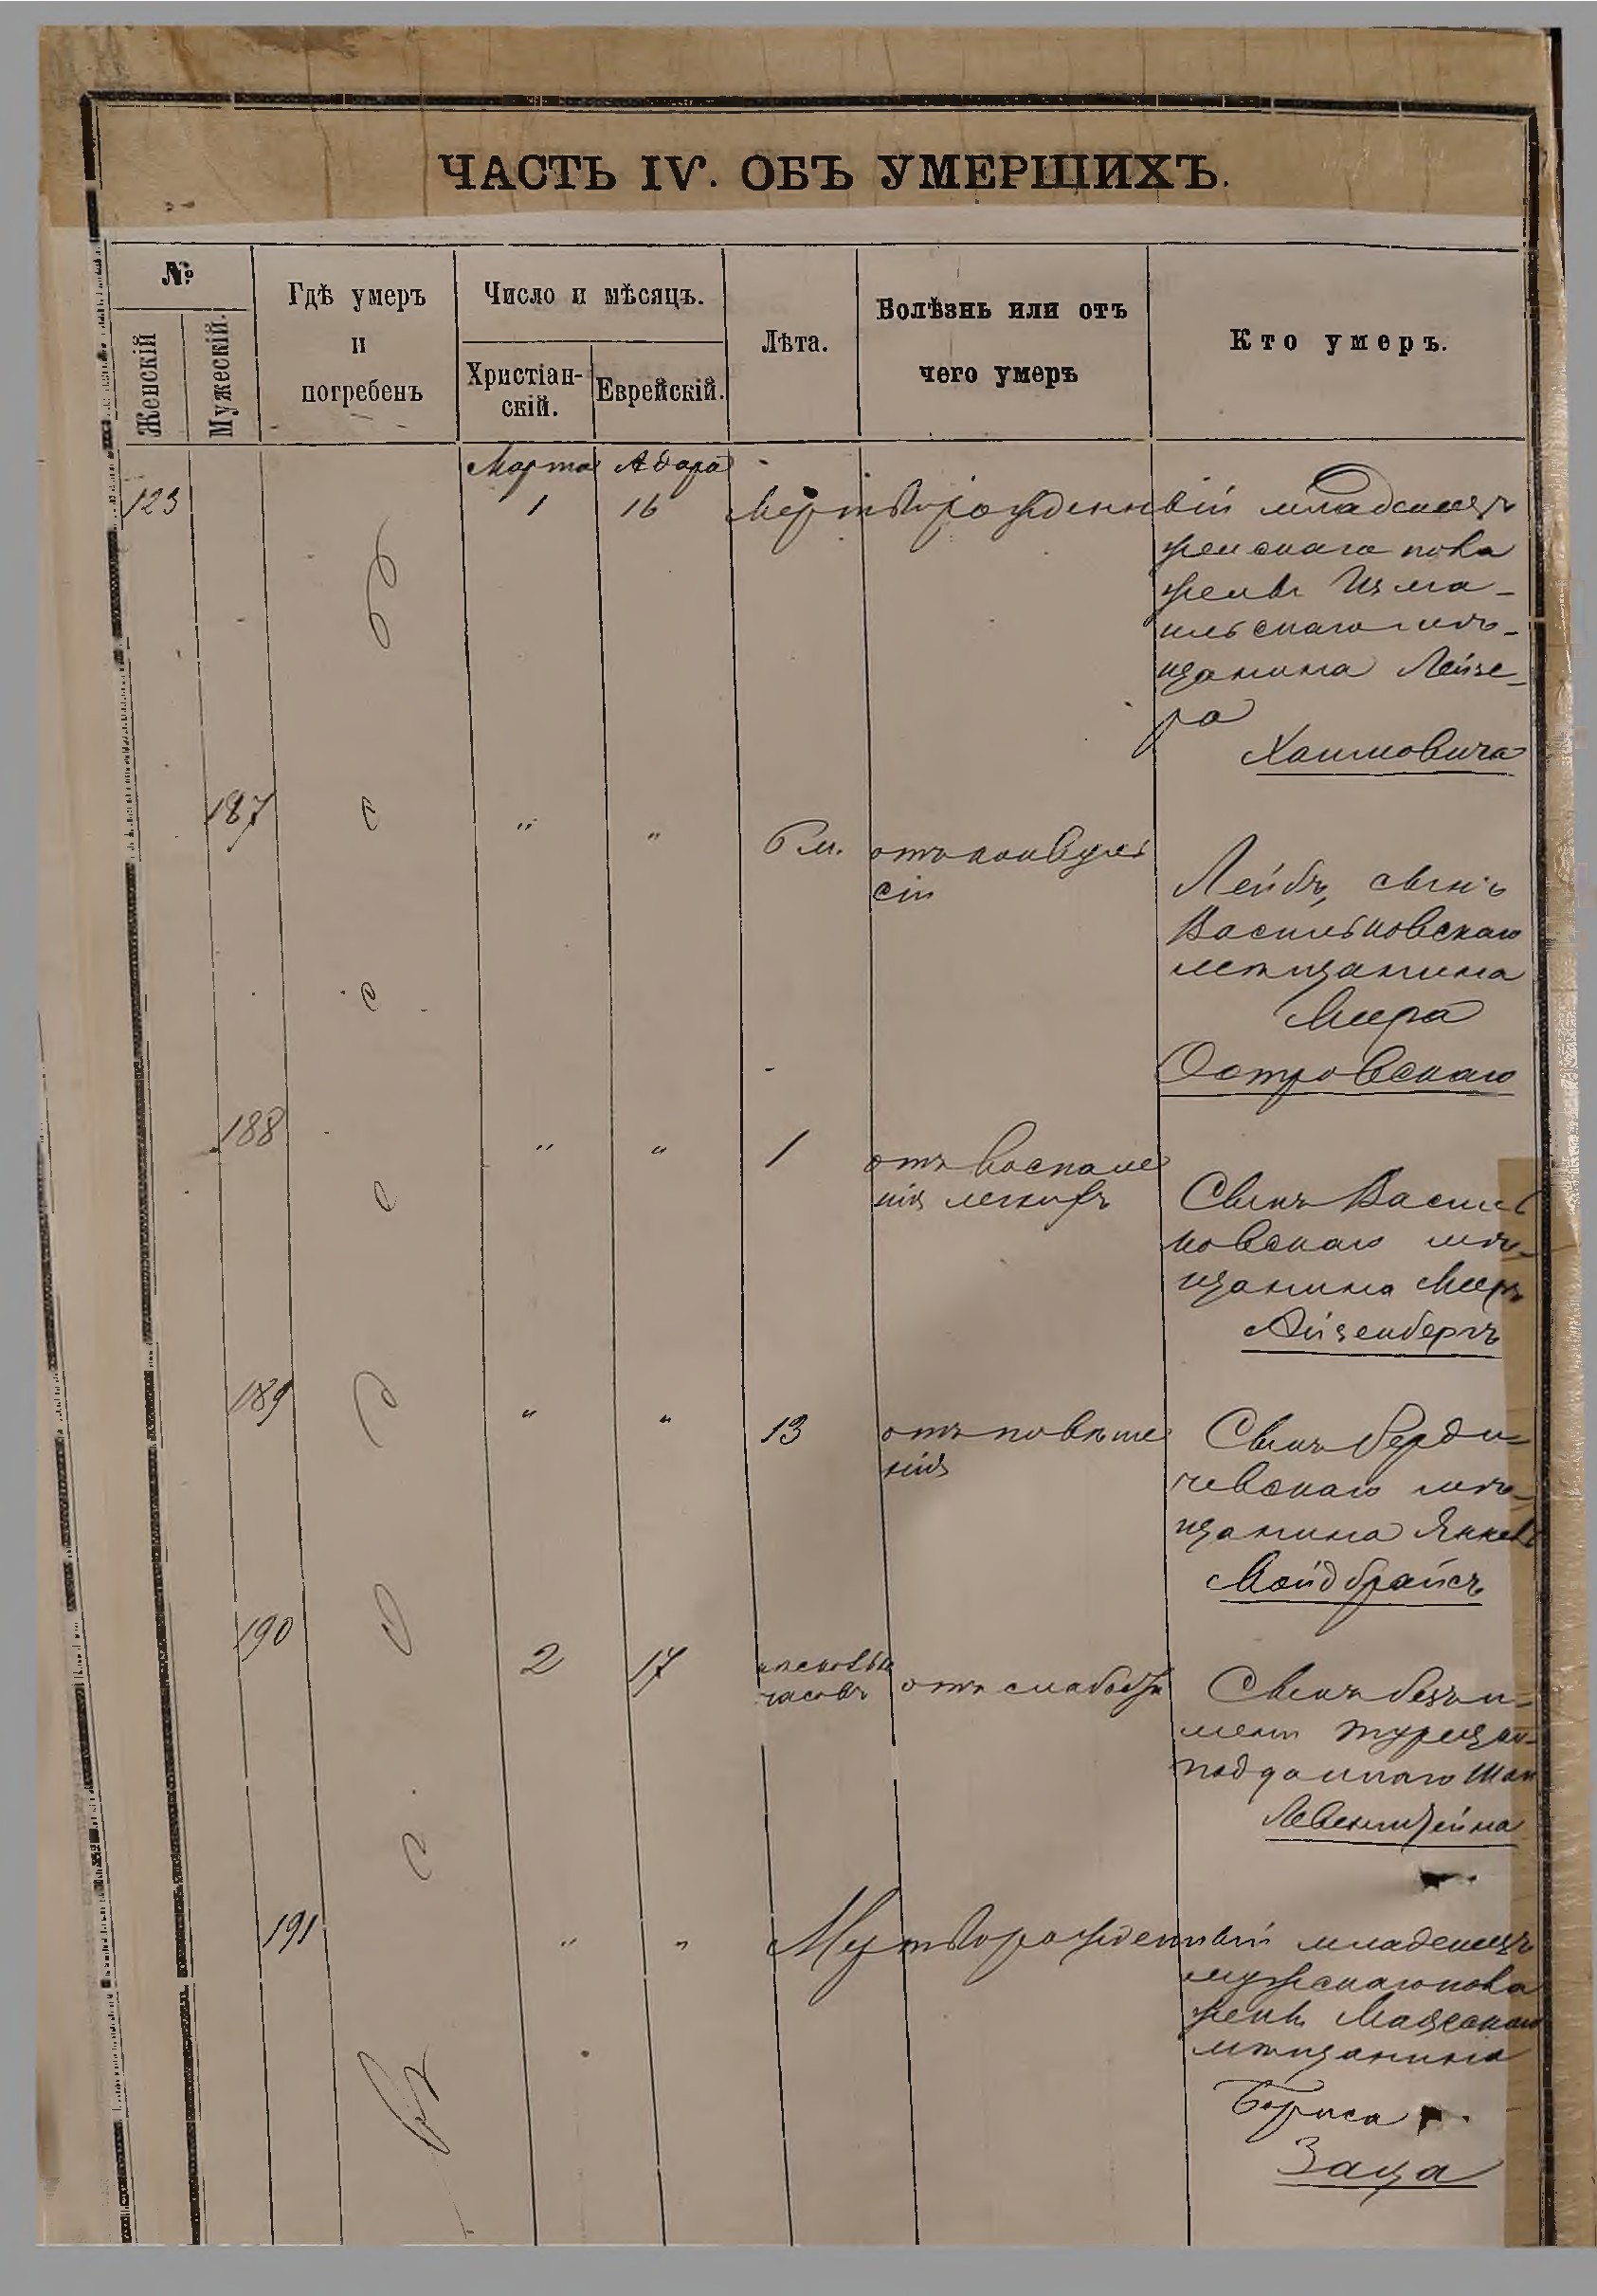 ЧАСТЬ IV. ОБЪ УМЕРШИХЪ.
№
Женскій
Мужескій.
Гдѣ умеръ
и
погребенъ
Число и мѣсяцъ.
Христіан-
скій.
Еврейскій.
Лѣта.
Болѣзнь или отъ
чего умеръ
Кто умеръ.
Марта Адара
123 1 16 Мертворожденный младенецъ
женскаго пола
жены Изма-
ильскаго мѣ-
щанина Лейзе-
ра
Хаимовича
187 " " 6 м. отъ конвуль
сіи
Лейбъ, сынъ
Васильковскаго
мѣщанина
Меера
Островскаго
188 " " 1 отъ воспале
нія легкихъ
Сынъ Василь
ковскаго мѣ-
щанина Мееръ
Айзенбергъ
189 " " 13 отъ
нія
Сынъ Берди-
чевскаго мѣ-
щанина Янкель
Мойдбрайсъ
190 2 17 нѣсколько
часовъ отъ слабости
Сынъ безъи-
мени турецко-
подданнаго
Левенштейна
191 " " Мертворожденный младенецъ
мужскаго пола
жены
мѣщанина
Бориса
Заца